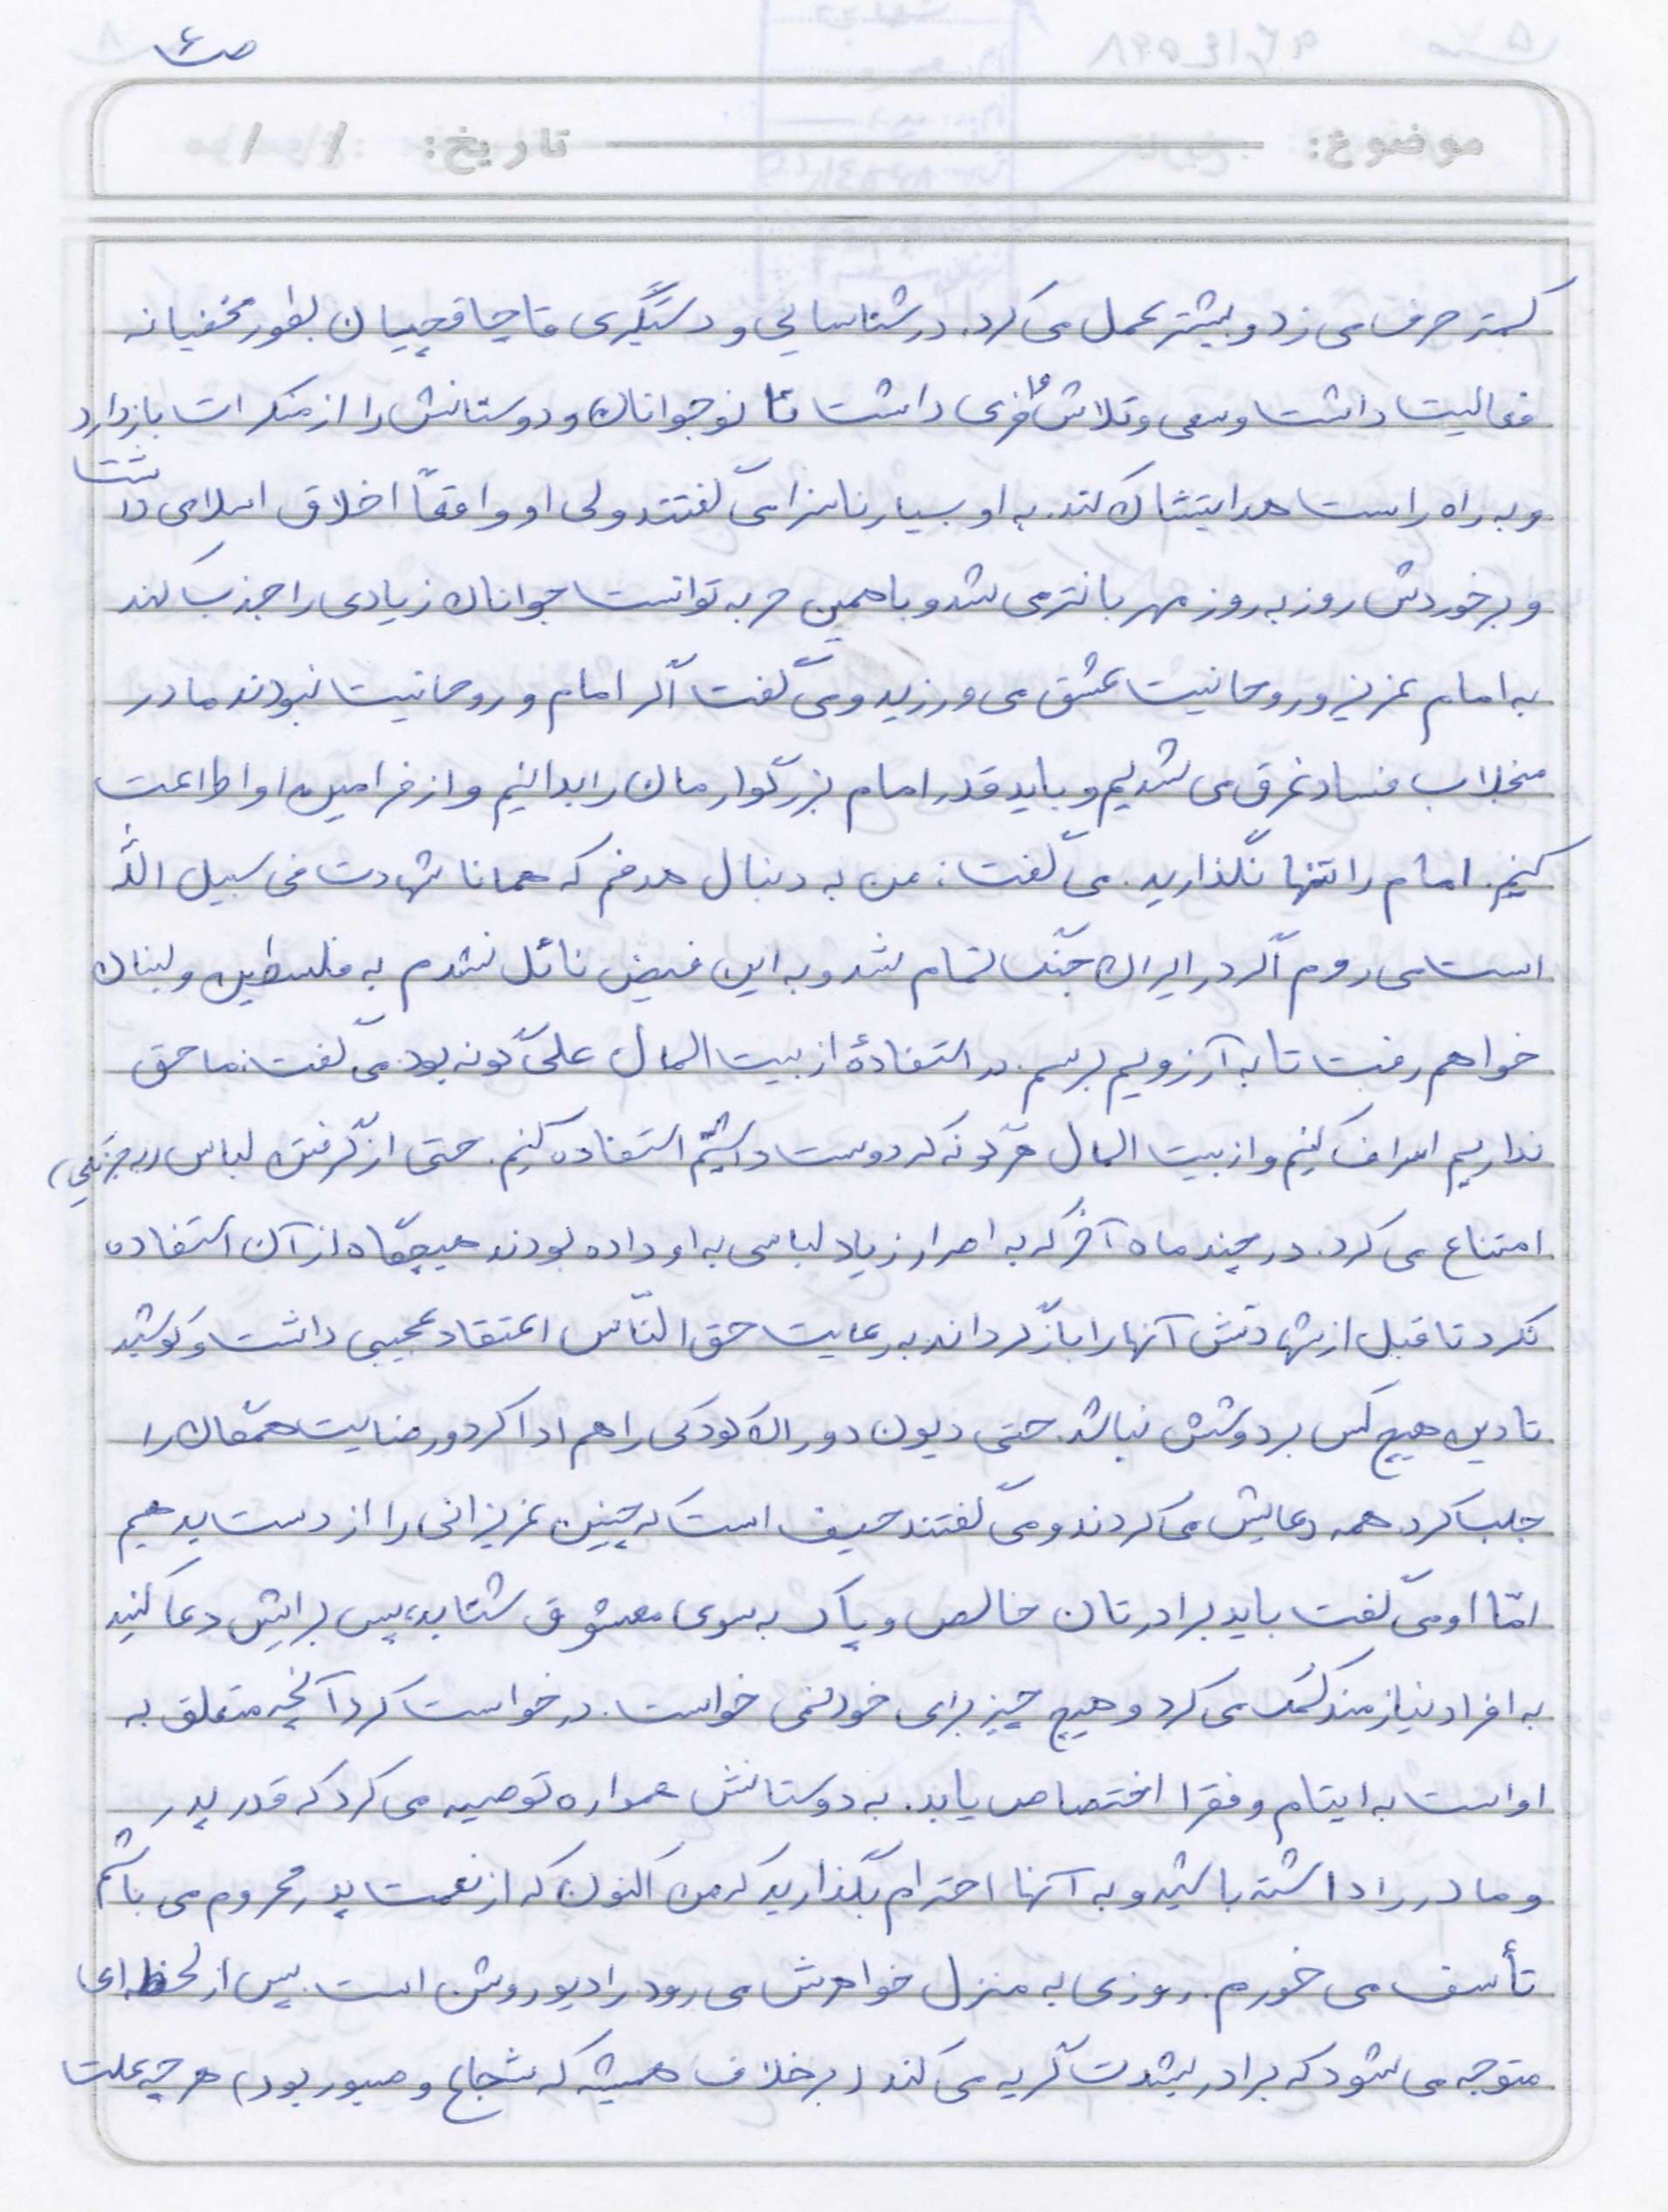 ص ۶
موضوع: تاریخ: / /
کمتر حرف می زد و بیشتر عمل می کرد. در شناسایی و دستگیری قاچاقچییان بطور مخفیانه
فعالیت داشت وسعی وتلاش وافری داشت تا نوجوانان و دوستانش را از منکرات بازدارد
و به راه راست هدایتشان کند. به او بسیار ناسزا می گفتند ولی او واقعاً اخلاق اسلامی داشت
و برخوردش روز به روز مهربانتر می شد و با همین حربه توانست جوانان زیادی را جذب کند
به امام عزیز و روحانیت عشق می ورزید و می گفت اگر امام و روحانیت نبودند ما در
منجلاب فساد غرق می شدیم و باید قدر امام بزرگوارمان را بدانیم و از فرامین او اطاعت
کنیم. امام را تنها نگذارید. می گفت: من به دنبال هدفم که همانا شهادت فی سبیل الله
است می روم اگر در ایران جنگ تمام شد و به این فیض نائل نشدم به فلسطین و لبنان
خواهم رفت تا به آرزویم برسم. در استفادهٔ از بیت المال علی گونه بود. می گفت: ما حق
نداریم اسراف کنیم و از بیت المال هر گونه که دوست داشتیم استفاده کنیم. حتی از گرفتن لباس
امتناع می کرد. در چند ماه آخر که به اصرار زیاد لباسی به او داده بودند هیچگاه از آن استفاده
نکرد تا قبل از شهادتش آنها را بازگرداند. به رعایت حق الناس اعتقاد عجیبی داشت و کوشید
تا دین هیچ کس بر دوشش نباشد. حتی دیون دوران کودکی را هم ادا کرد و رضایت همگان را
جلب کرد. همه دعایش می کردند و می گفتند حیف است که چنین عزیزانی را از دست بدهیم
امّا او می گفت باید برادرتان خالص و پاک به سوی معشوق شتابد، پس برایش دعا کنید
به افراد نیازمند کمک می کرد و هیچ چیز برای خود نمی خواست. درخواست کرد آنچه متعلق به
او است به ایتام و فقرا اختصاص یابد. به دوستانش همواره توصیه می کرد که قدر پدر
و مادر را داشته باشید و به آنها احترام بگذارید که من اکنون که از نعمت پدر محروم می باشم
تأسف می خورم. روزی به منزل خواهرش می رود. رادیو روشن است. پس از لحظه ای
متوجه می شود که برادر بشدت گریه می کند (برخلاف همیشه که شجاع و صبور بود) هر چه علت